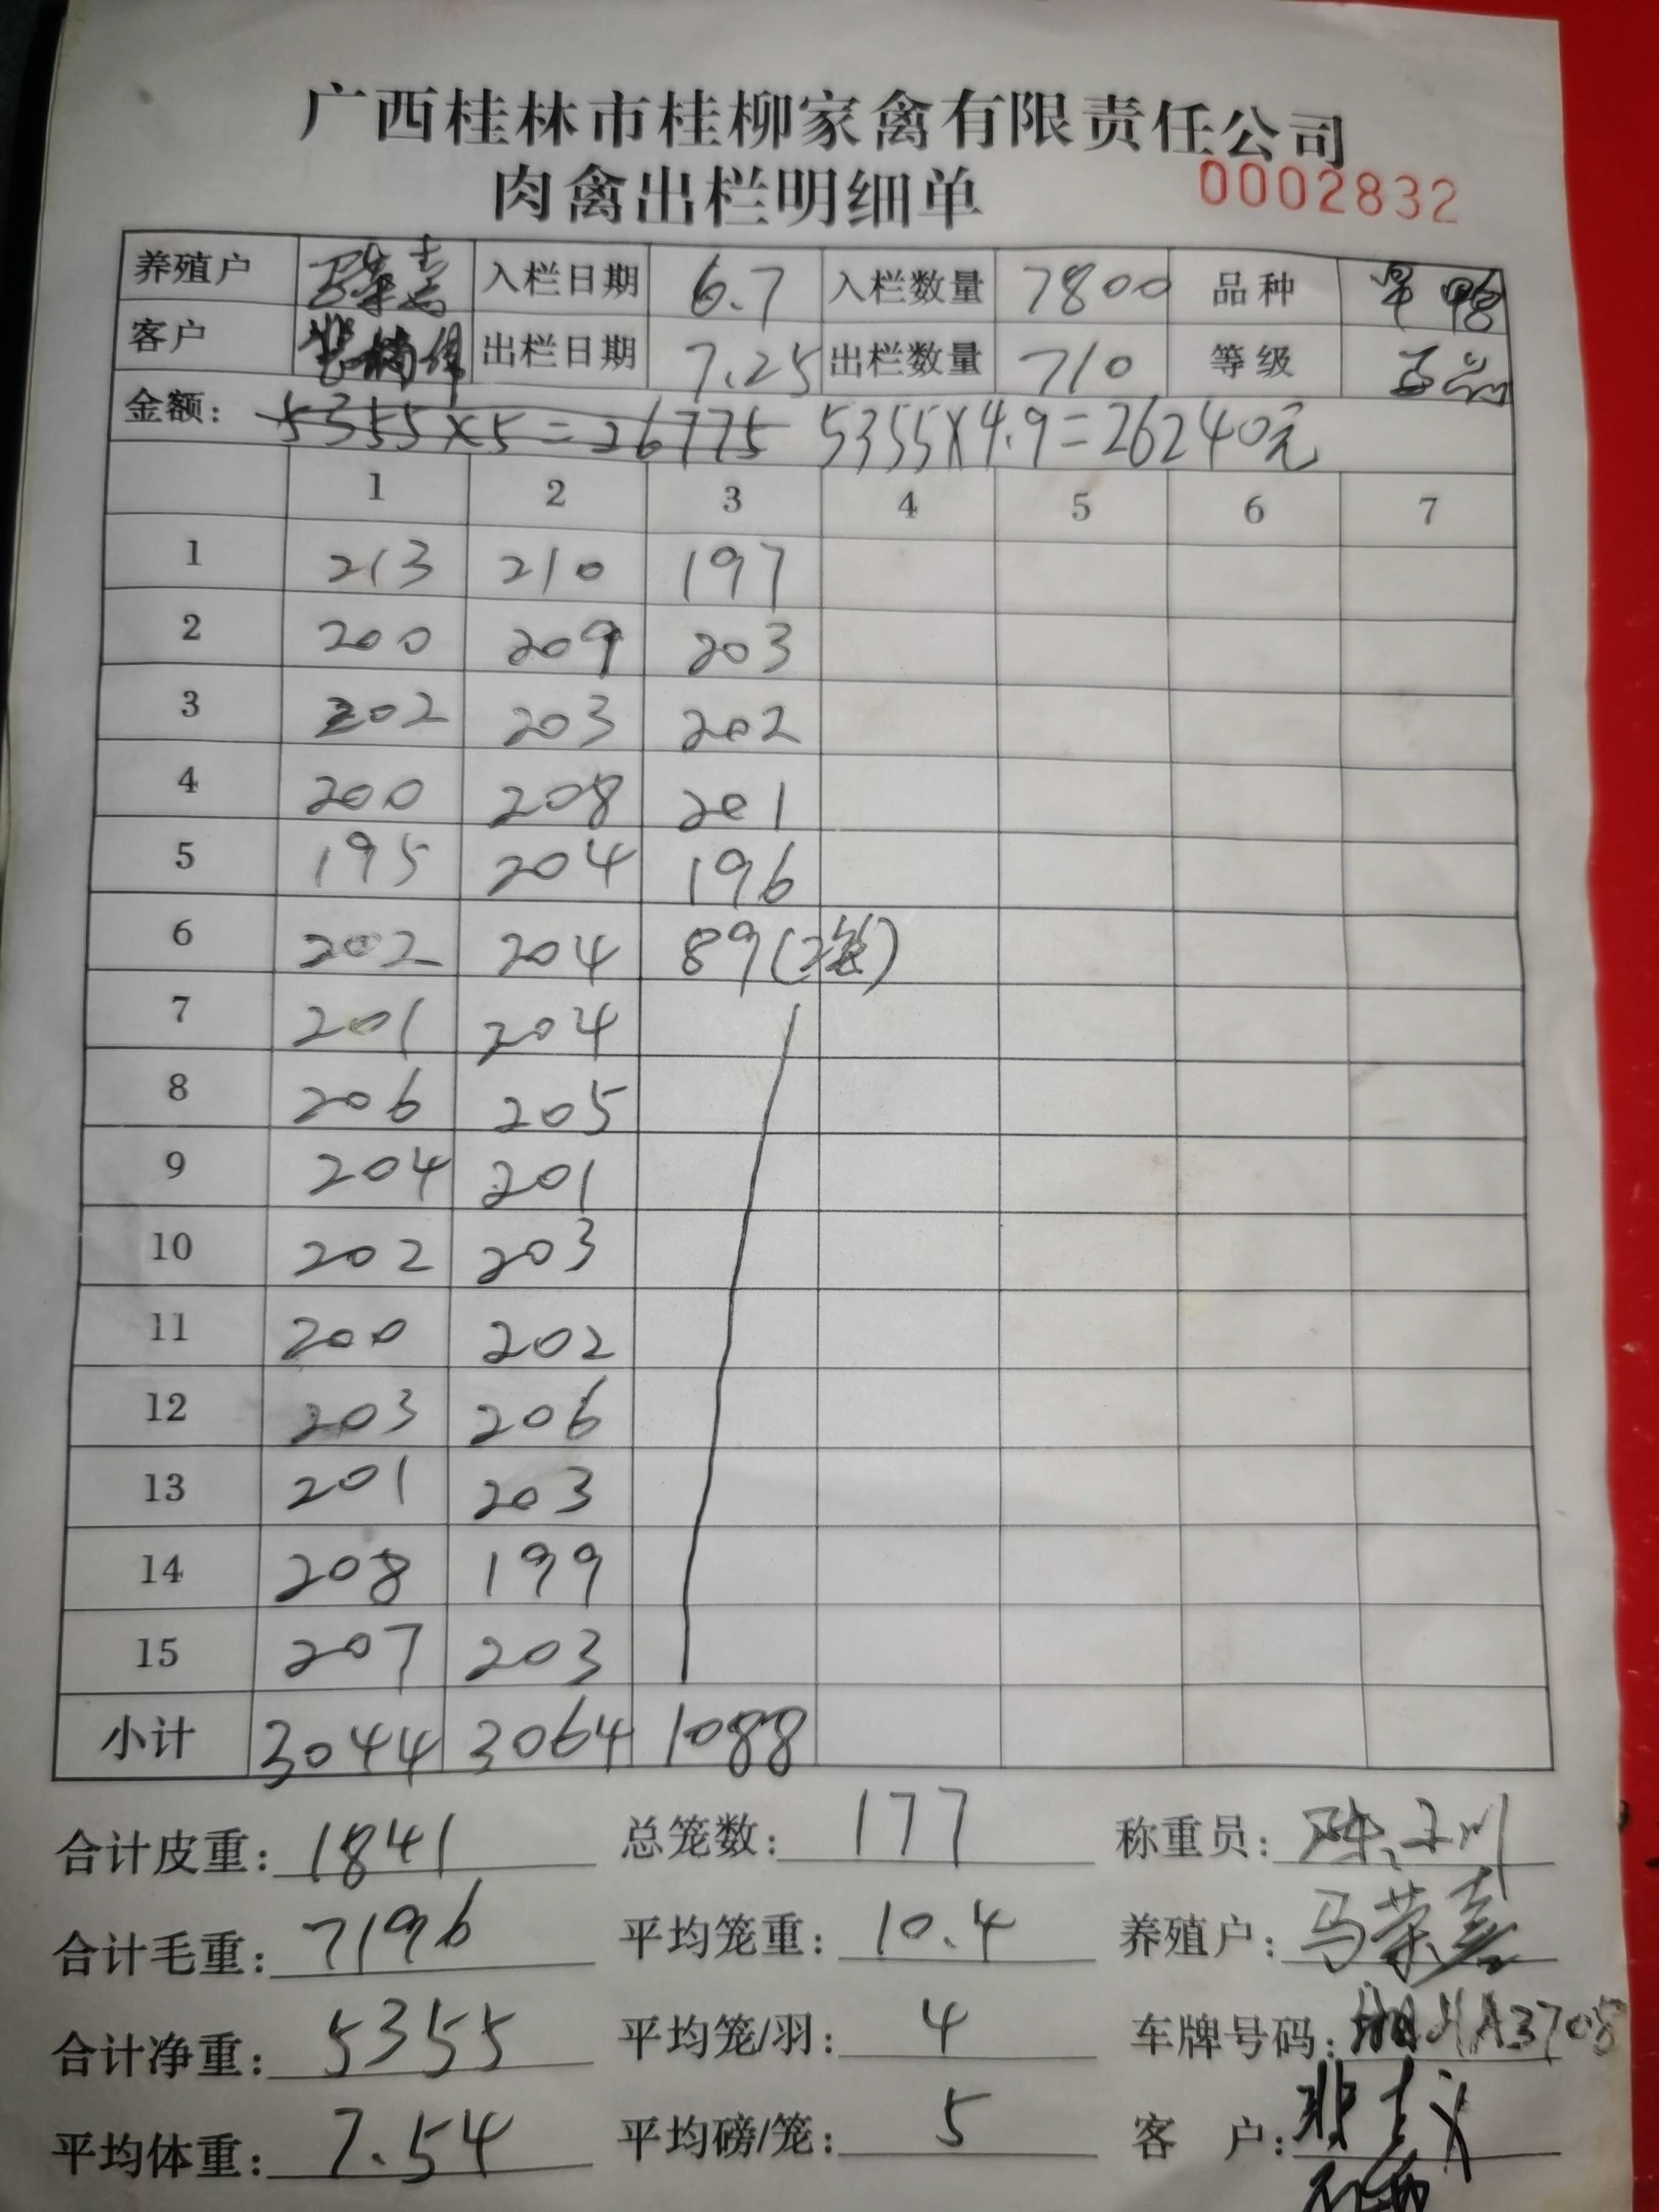 广西桂林市桂柳家禽有限责任公司
肉禽出栏明细单 0002832
养殖户 入栏日期 6.7 入栏数量 7800 品种
客户 出栏日期 7.25 出栏数量 710 等级
金额: 5355×5=26775 5355×4.9=26240元
1 2 3 4 5 6 7
1 213 210 197
2 200 209 203
3 202 203 202
4 200 208 201
5 195 204 196
6 202 204 89(2笼)
7 201 204
8 206 205
9 204 201
10 202 203
11 200 202
12 203 206
13 201 203
14 208 199
15 207 203
小计 3044 3064 1088
合计皮重: 1841 总笼数: 177 称重员:
合计毛重: 7196 平均笼重: 10.4 养殖户: 马荣嘉
合计净重: 5355 平均笼/羽: 4 车牌号码:
平均体重: 7.54 平均磅/笼: 5 客户: